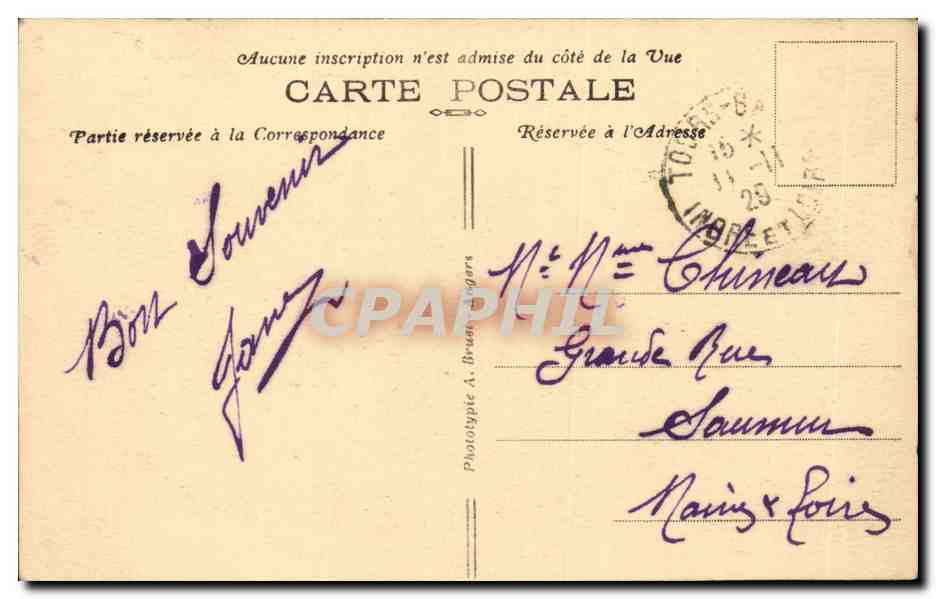 Aucune inscription n'est admise du côté de la Vue
CARTE POSTALE
Partie réservée à la Correspondance
Réservée à l'Adresse
TOURS-GA
15 *
11 -11
29
INDRE ET LOIRE
Bon Souvenir
Mr Mme
Grande Rue
Saumur
Maine & Loire
Phototypie A. Bruel - Angers
CPAPHIL